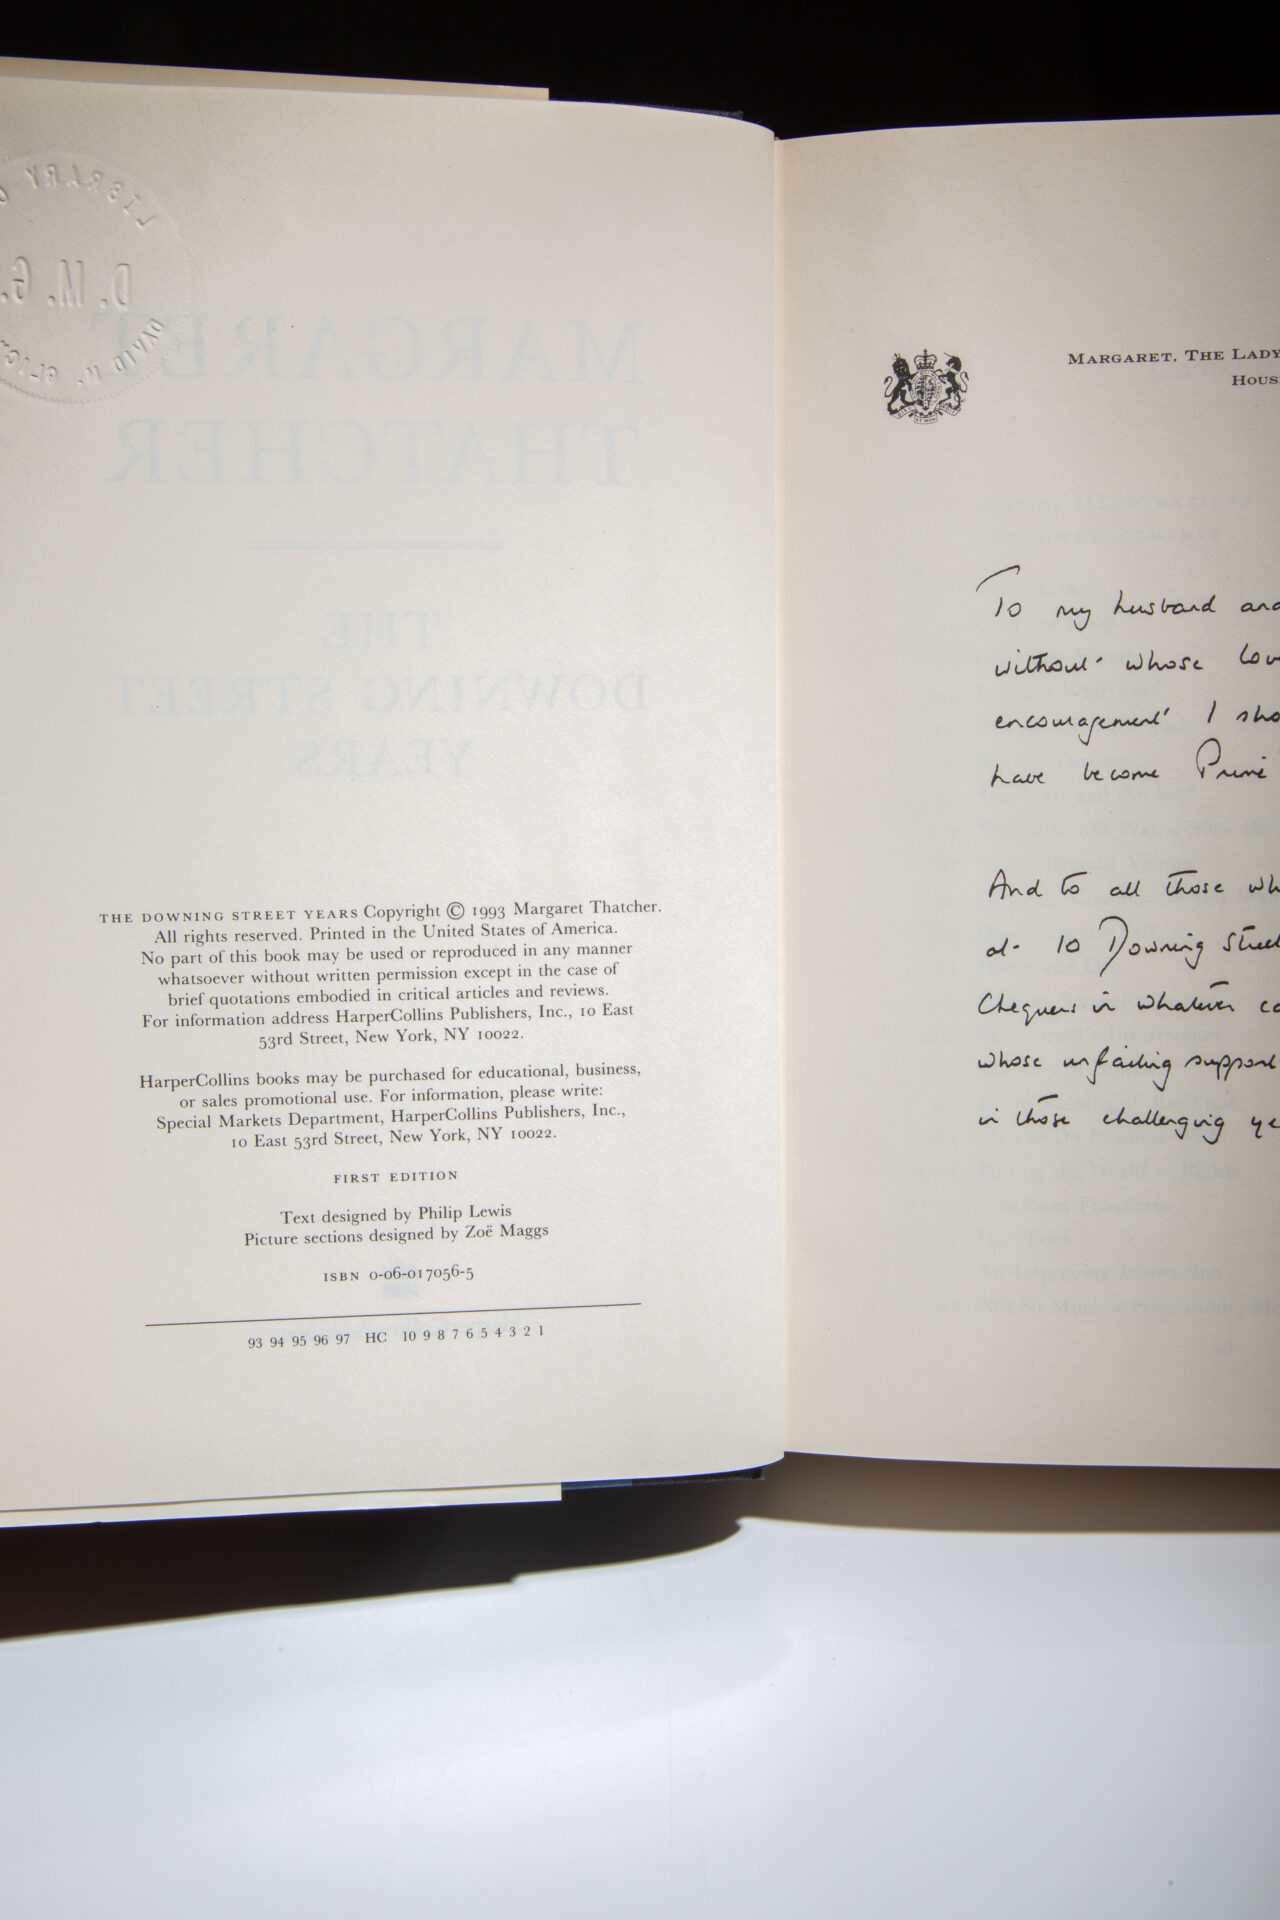 LIBRARY
D. M. G.
DAVID M.
MARGARET
THATCHER
THE
DOWNING STREET
YEARS
THE DOWNING STREET YEARS Copyright © 1993 Margaret Thatcher.
All rights reserved. Printed in the United States of America.
No part of this book may be used or reproduced in any manner
whatsoever without written permission except in the case of
brief quotations embodied in critical articles and reviews.
For information address HarperCollins Publishers, Inc., 10 East
53rd Street, New York, NY 10022.
HarperCollins books may be purchased for educational, business,
or sales promotional use. For information, please write:
Special Markets Department, HarperCollins Publishers, Inc.,
10 East 53rd Street, New York, NY 10022.
FIRST EDITION
Text designed by Philip Lewis
Picture sections designed by Zoë Maggs
ISBN 0-06-017056-5
93 94 95 96 97 HC 10 9 8 7 6 5 4 3 2 1
MARGARET, THE LADY
HOUS
To my husband and
without whose lov
encouragement I sho
have become Prime
And to all those wh
at 10 Downing Street
Chequers in whatever ca
whose unfailing support
in those challenging ye